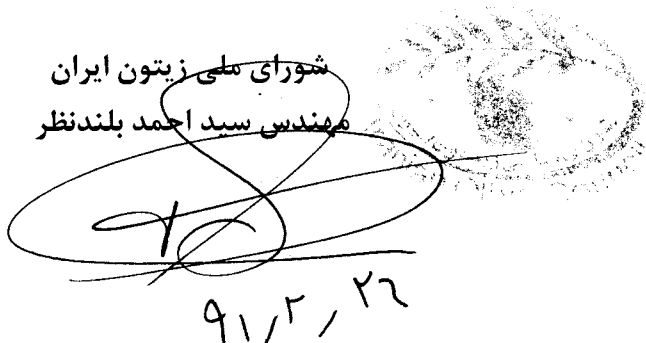 شورای ملی زیتون ایران
مهندس سید احمد بلندنظر
۹۱٫۲٫۲۶